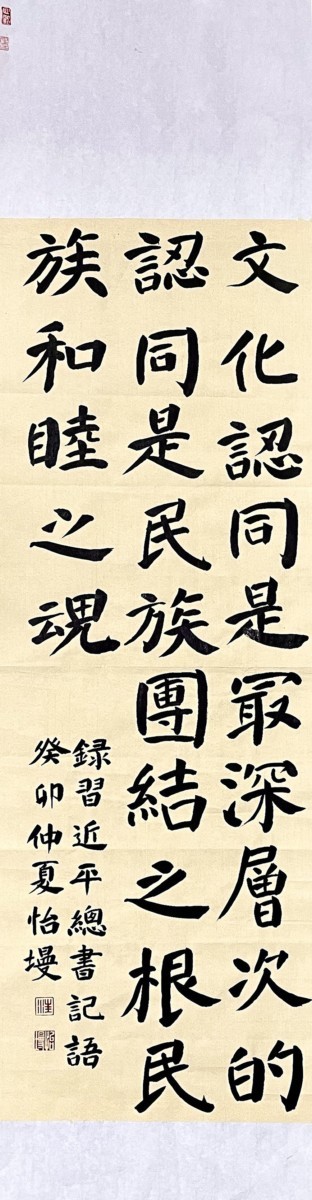 文化認同是最深層次的
認同是民族團結之根民
族和睦之魂
錄習近平總書記語
癸卯仲夏怡墁